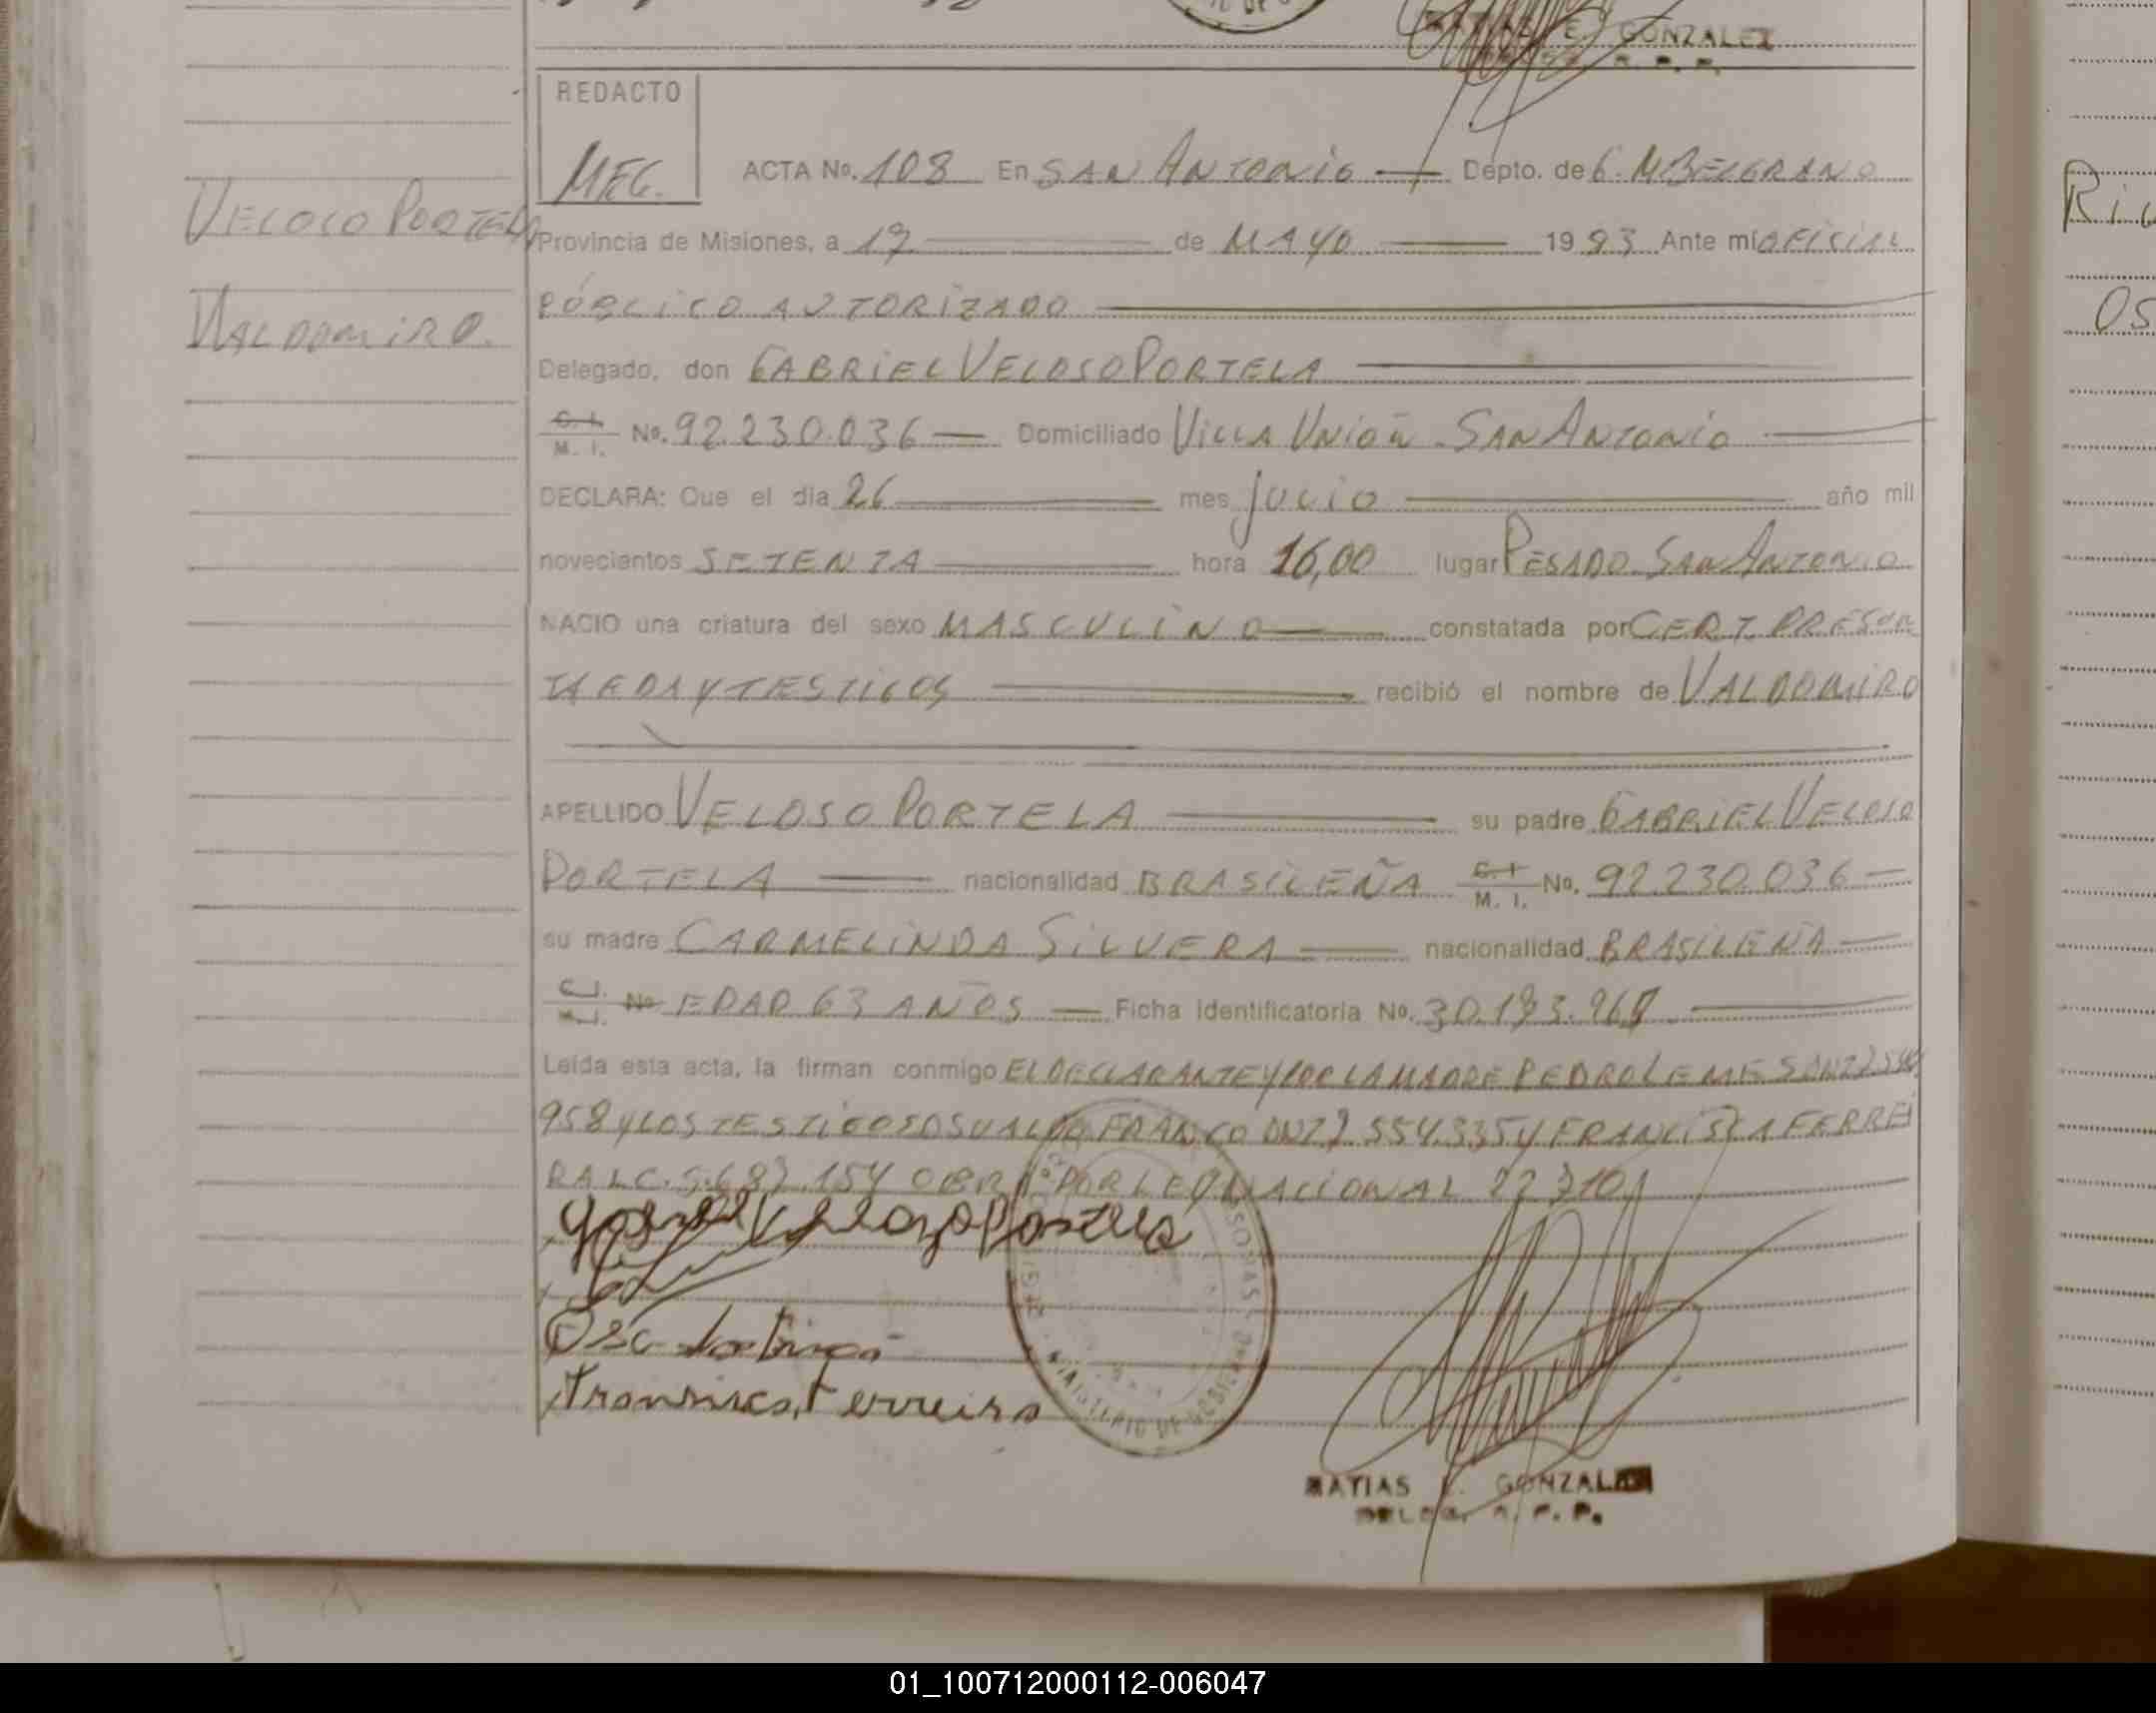 E. GONZALEZ
REDACTO
MEG.
ACTA No. 108 En SAN ANTONIO Depto. de G. M BELGRANO
VELOSO PORTELA
Provincia de Misiones, a de MAYO 1983 Ante mi OFICIAL
PÚBLICO AUTORIZADO
VALDOMIRO.
Delegado, don GABRIEL VELOSO PORTELA
C. I. M. I. No. 92.230.036 Domiciliado VILLA UNIOÑ - SAN ANTONIO
DECLARA: Que el dia 26 mes JULIO año mil
noveciantos SETENTA hora 16,00 lugar PESADO SAN ANTONIO
NACIO una criatura del sexo MASCULINO constatada por CERT. PRESUN
TA EDA Y TESTIGOS recibió el nombre de VALDOMIRO
APELLIDO VELOSO PORTELA su padre GABRIEL VELOSO
PORTELA nacionalidad BRASILEÑA C. I. M. I. No. 92.230.036
su madre CARMELINDA SILVERA nacionalidad BRASILEÑA
C. I. M. I. No EDAD 63 AÑOS Ficha identificatoria No.
Leida esta acta, la firman conmigo EL DECLARANTE Y POR LA MADRE PEDRO LEMES
958 Y LOS TESTIGOS OSVALDO FRANCO Y FRANCISCA FERREI
RA L.C. POR LEY NACIONAL
Gabriel Velozo Portela
Francisca Ferreira
MINISTERIO DE
MATIAS E. GONZALEZ
DELEG. R. P. P.
01_100712000112-006047